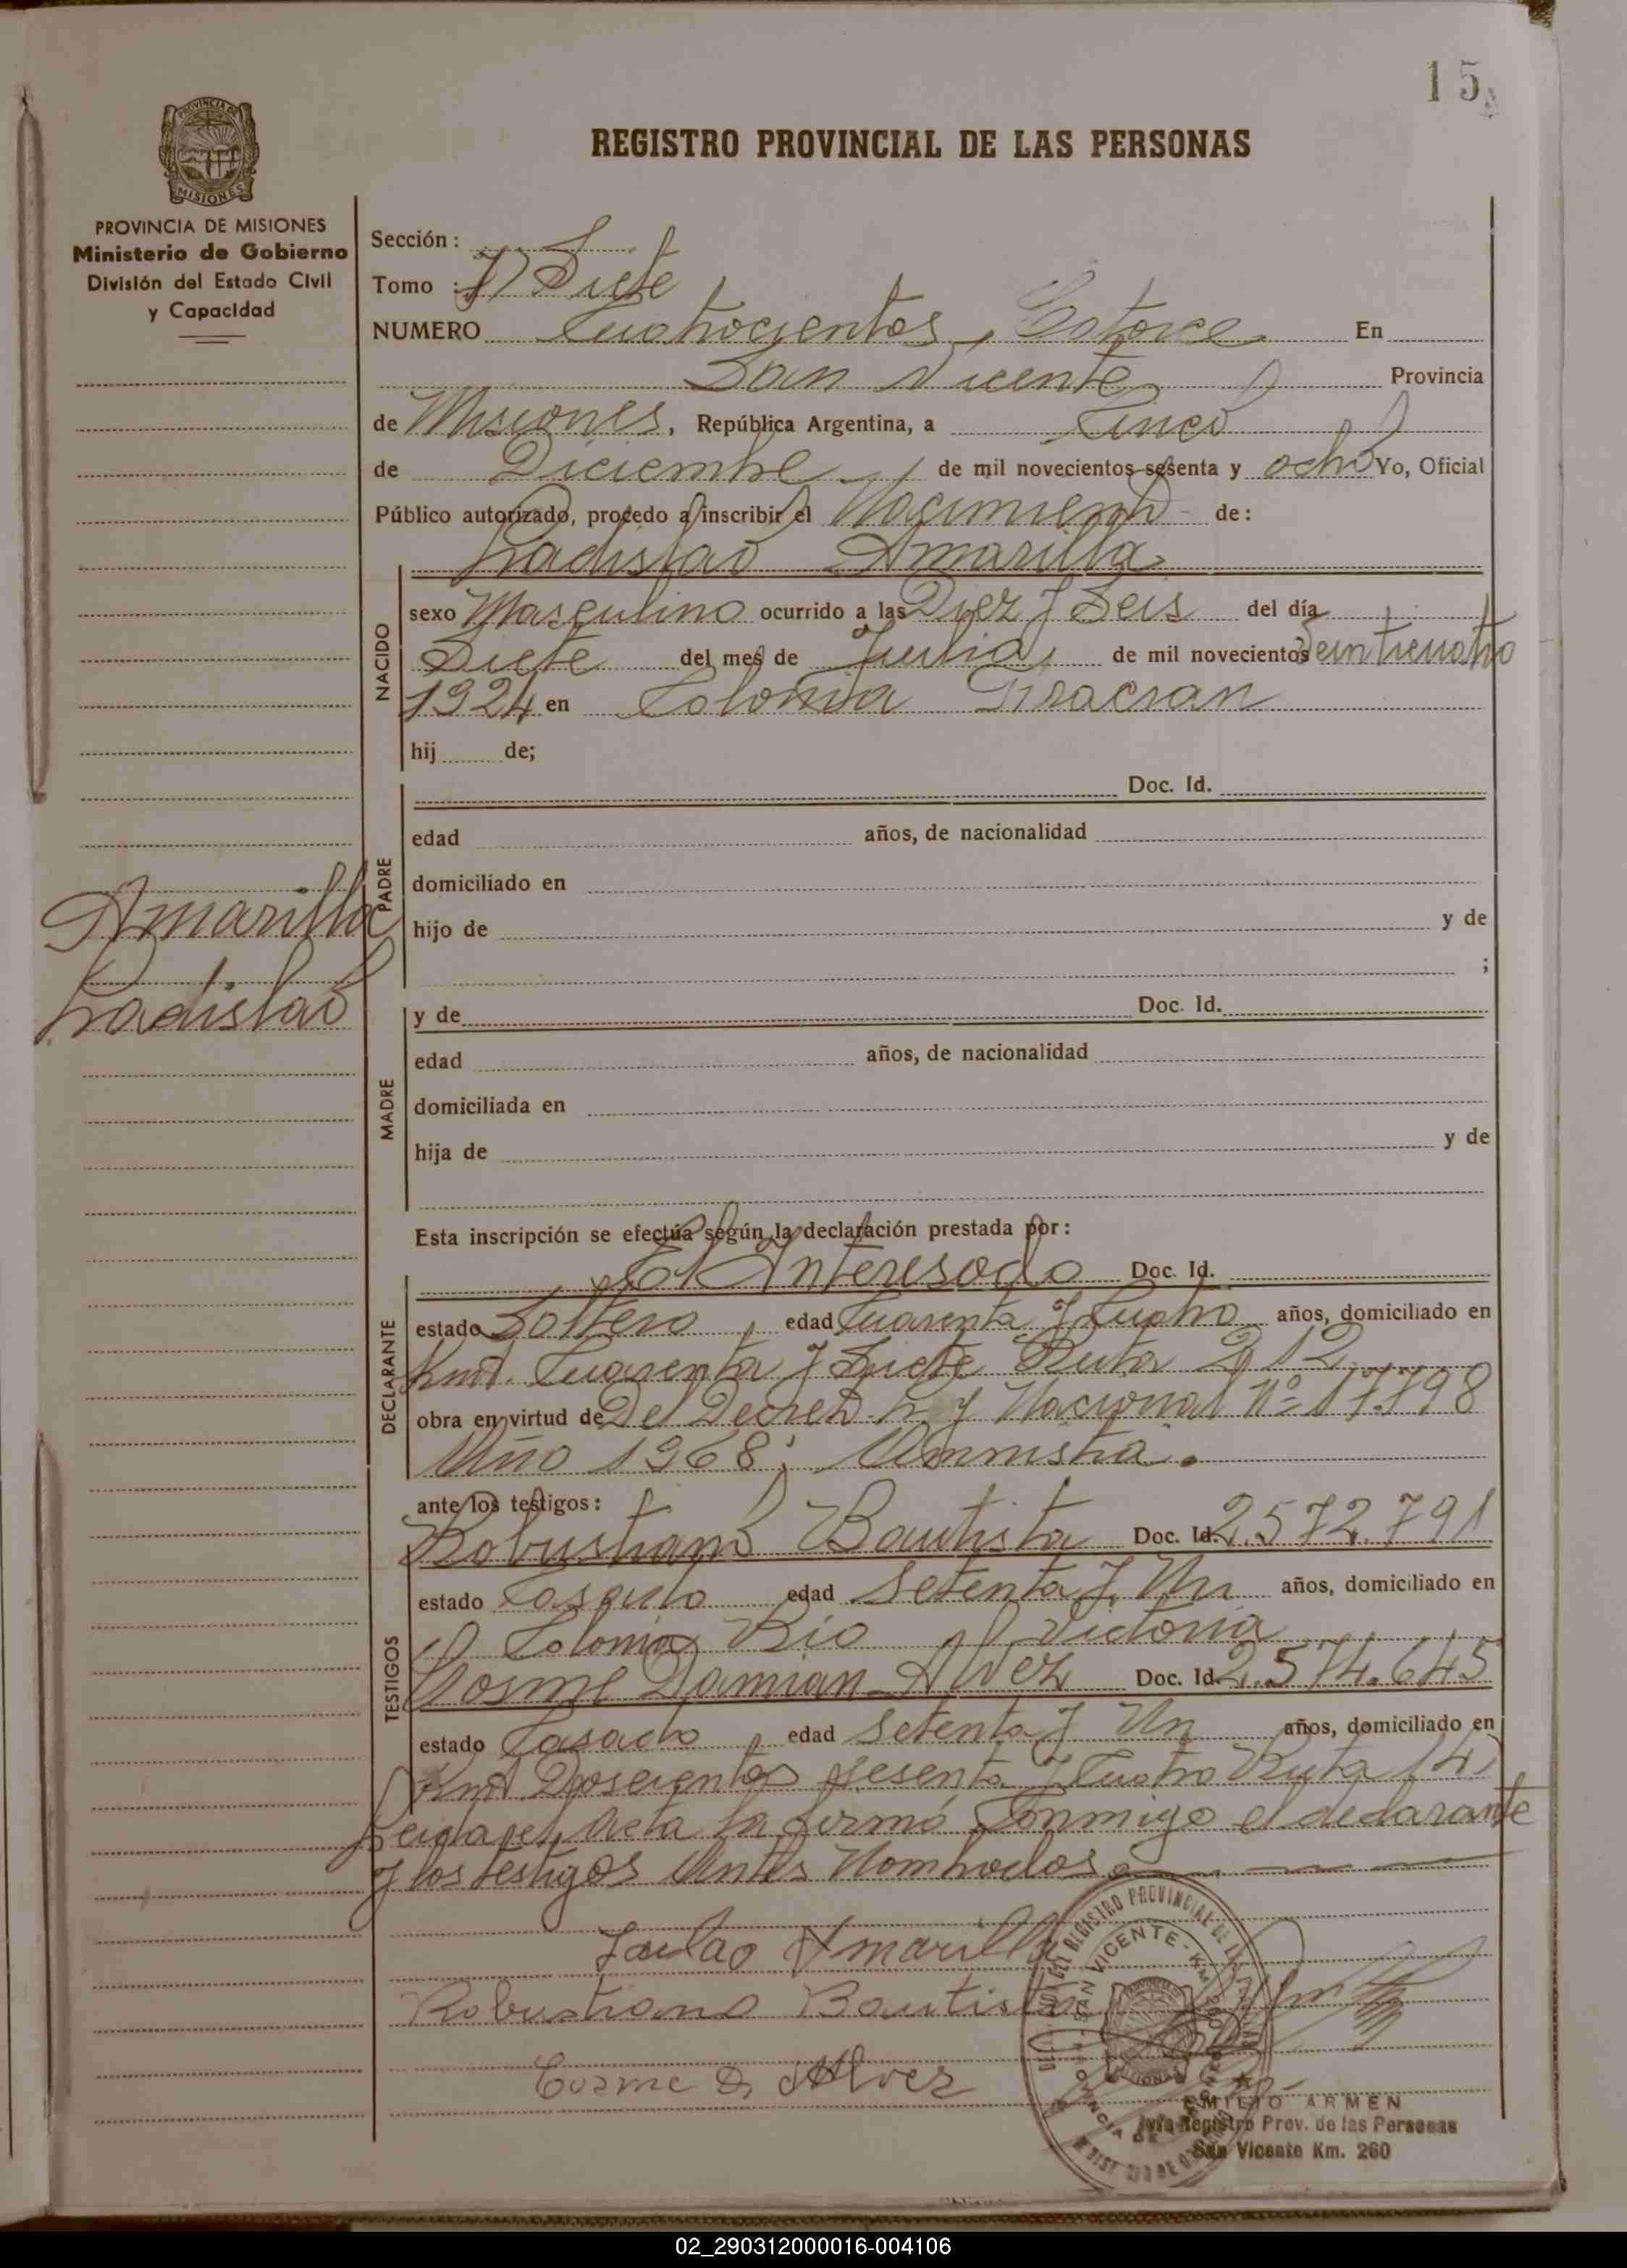 15
REGISTRO PROVINCIAL DE LAS PERSONAS
PROVINCIA DE MISIONES
MISIONES
PROVINCIA DE MISIONES
Ministerio de Gobierno
División del Estado Civil
y Capacidad
Amarilla
Ladislao
Sección:
Tomo : Siete
NUMERO Cuatrocientos, Catorce En
San Vicente Provincia
de Misiones, República Argentina, a Cinco
de Diciembre de mil novecientos sesenta y ocho Yo, Oficial
Público autorizado, procedo a inscribir el Nacimiento de:
Ladislao Amarilla
NACIDO
sexo Masculino ocurrido a las Diez y Seis del día
Siete del mes de Julio, de mil novecientos Veinticuatro
1924 en Colonia Firacran
hij de;
PADRE
Doc. Id.
edad años, de nacionalidad
domiciliado en
hijo de y de
;
MADRE
y de Doc. Id.
edad años, de nacionalidad
domiciliada en
hija de y de
Esta inscripción se efectúa según la declaración prestada por:
DECLARANTE
El Interesado Doc. Id.
estado Soltero, edad Cuarenta y Cuatro años, domiciliado en
Kmt. Cuarenta y Siete Ruta 212
obra en virtud de Del Decreto Ley Nacional Nº 17.798
Año 1968; Amnistia.
ante los testigos:
TESTIGOS
Robustiano Bautista Doc. Id. 2.572.791
estado Casado edad Setenta y Un años, domiciliado en
Colonia Rio Victoria
Cosme Damian Alvez Doc. Id. 2.574.645
estado Casado, edad Setenta y Un años, domiciliado en
Kmt. Doscientos Sesenta y Cuatro Ruta 14,
Leida el Acta la firmó Conmigo el declarante
y los testigos Antes Nombrados
Lailao Amarilla
Robustiano Bautista
Cosme D. Alvez
REGISTRO PROVINCIAL DE LAS
SAN VICENTE - KM. 260
PROVINCIA DE
EMILIO ARMEN
Jefe Registro Prov. de las Personas
San Vicente Km. 260
02_290312000016-004106